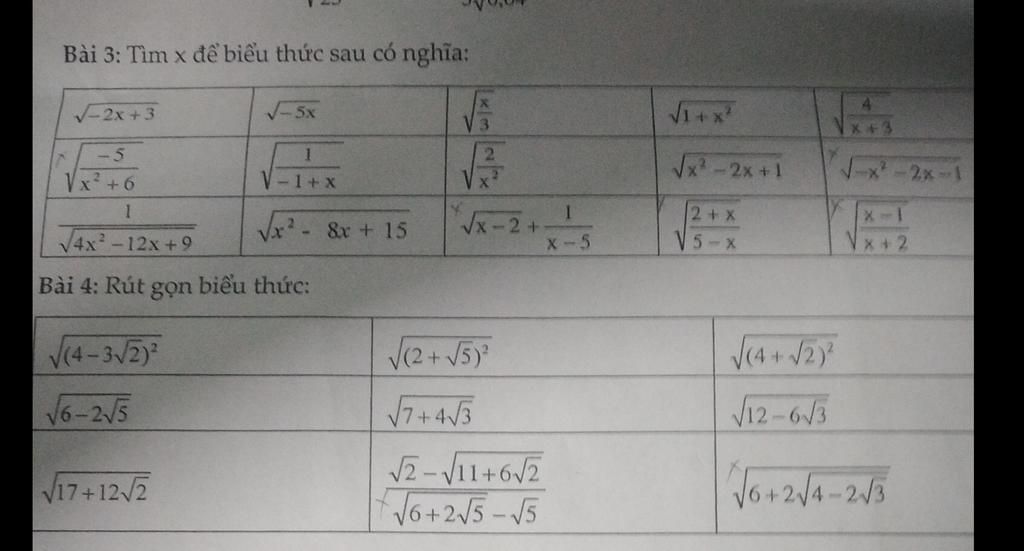 Bài 3: Tìm x để biểu thức sau có nghĩa:
√(-2x + 3) √(-5x) √(x/3) √(1 + x²) √(4/(x + 3))
√(-5/(x² + 6)) √(1/(-1 + x)) √(2/x²) √(x² - 2x + 1) √(-x² - 2x - 1)
1/√(4x² - 12x + 9) √(x² - 8x + 15) √(x - 2) + 1/(x - 5) √((2 + x)/(5 - x)) √((x - 1)/(x + 2))
Bài 4: Rút gọn biểu thức:
√((4 - 3√2)²) √((2 + √5)²) √((4 + √2)²)
√(6 - 2√5) √(7 + 4√3) √(12 - 6√3)
√(17 + 12√2) (√2 - √(11 + 6√2))/(√(6 + 2√5) - √5) √(6 + 2√(4 - 2√3))